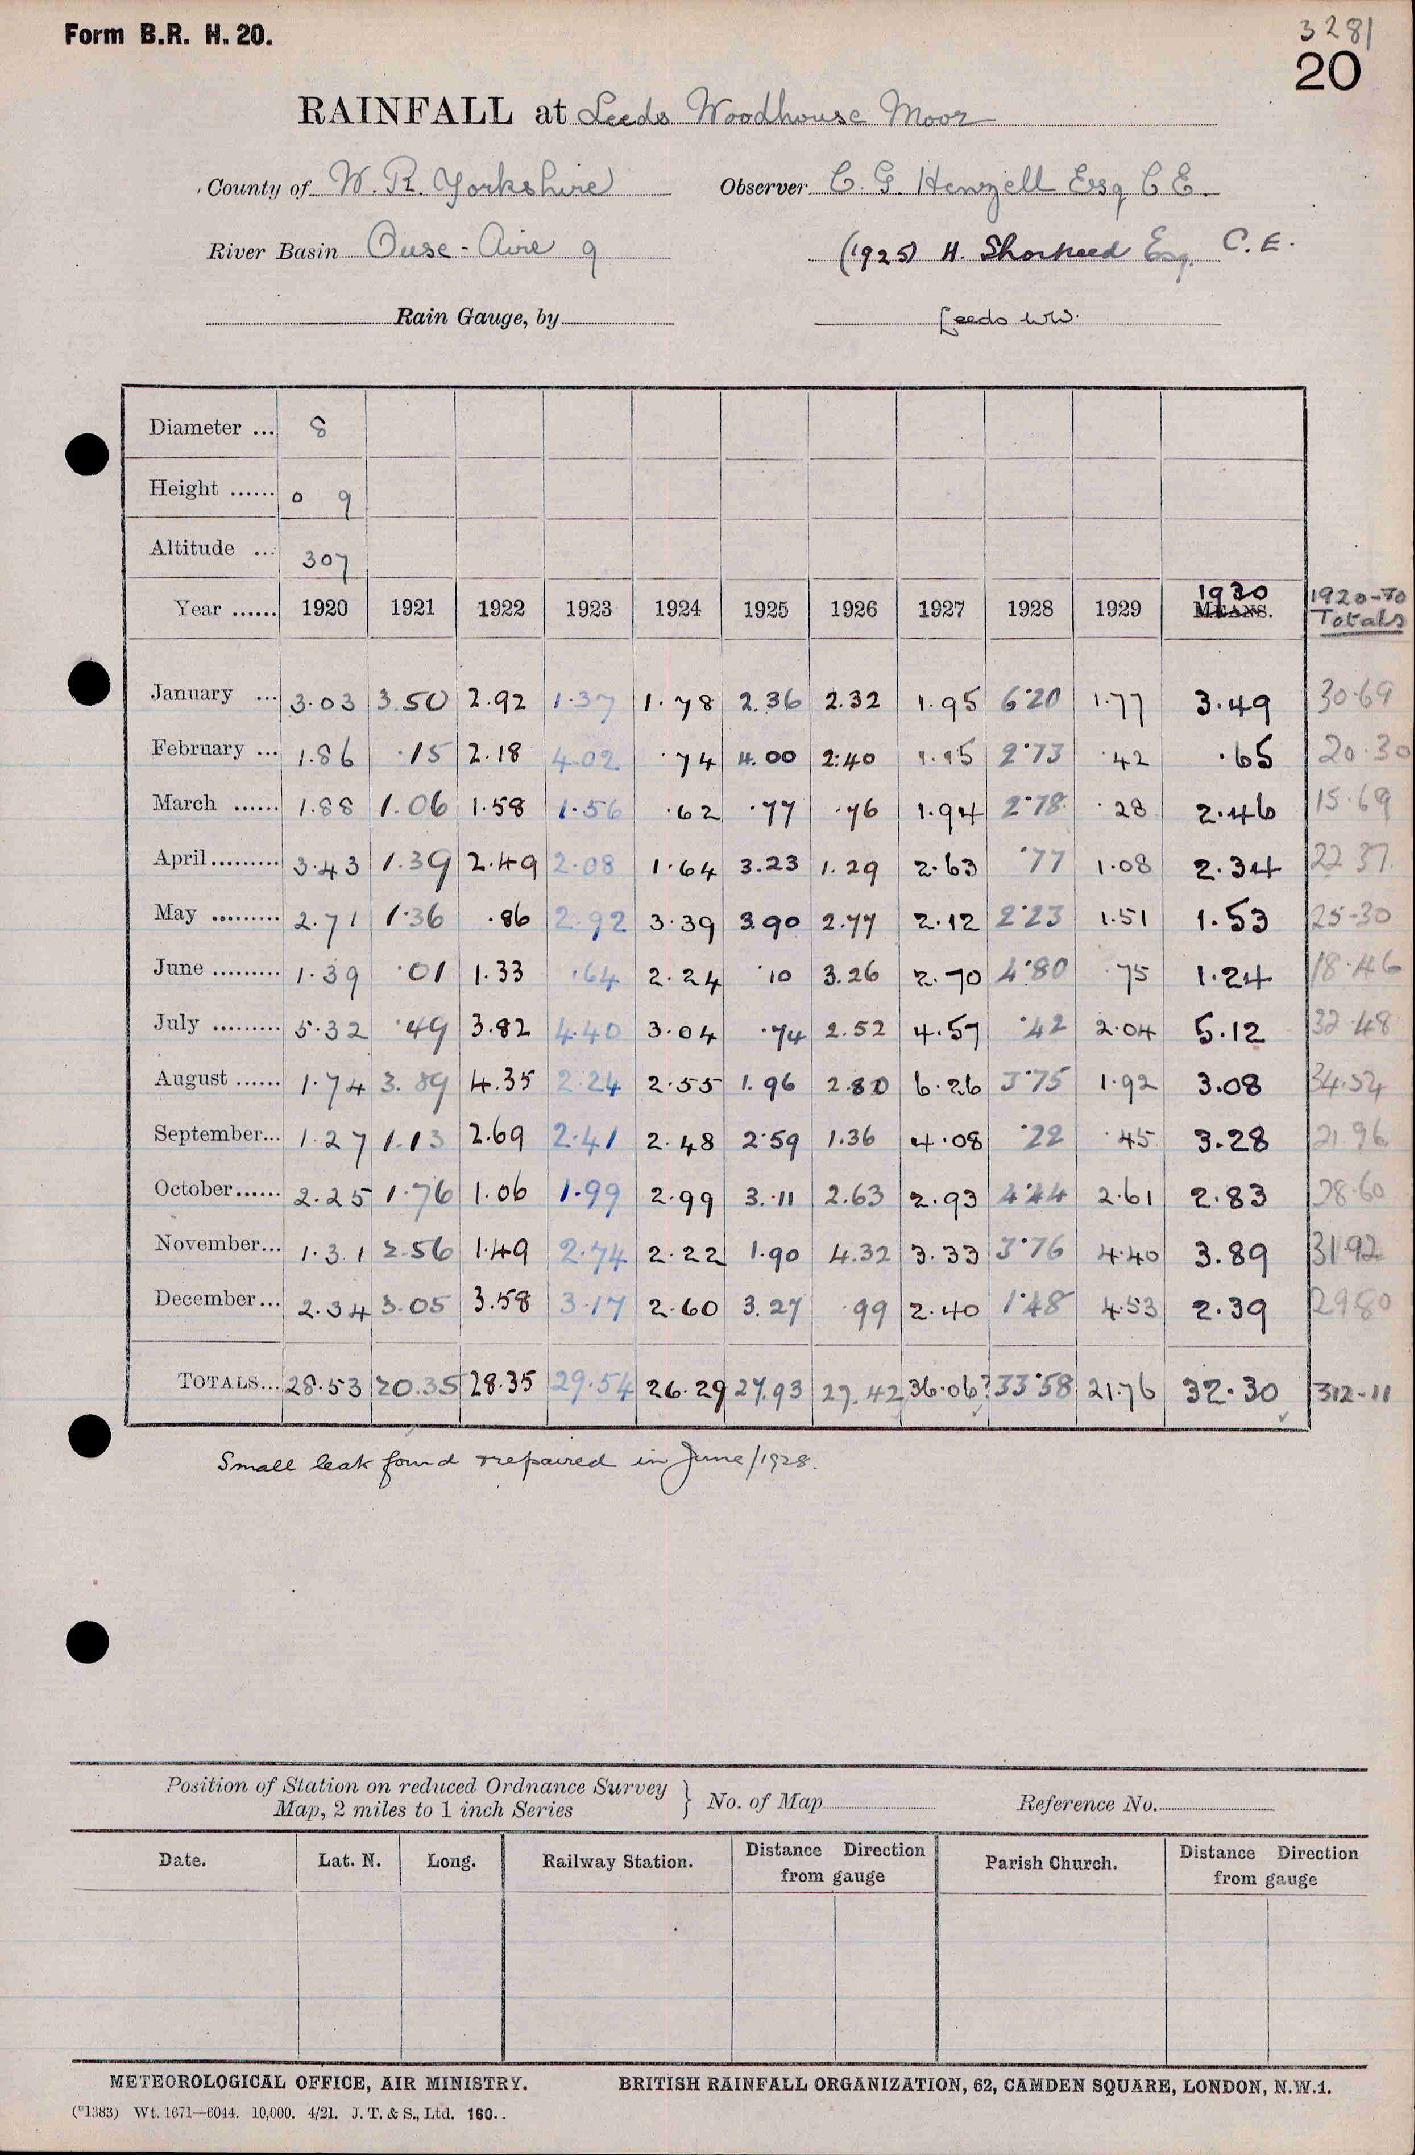 Form B.R. H. 20.
3281
20
RAINFALL at Leeds Woodhouse Moor
County of W. R. Yorkshire Observer C. G. Henzell Esq C E.
River Basin Ouse - Aire 9 (1925) H. Shortreed Esq. C. E.
Rain Gauge, by Leeds WW.
Diameter ... 8
Height ...... 0 9
Altitude ... 307
Year ...... 1920 1921 1922 1923 1924 1925 1926 1927 1928 1929 1930 MEANS. 1920-30 Totals
January ... 3.03 3.50 2.92 1.37 1.78 2.36 2.32 1.95 6.20 1.77 3.49 30.69
February ... 1.86 .15 2.18 4.02 .74 4.00 2.40 1.15 2.73 .42 .65 20.30
March ...... 1.88 1.06 1.58 1.56 .62 .77 .76 1.94 2.78 .28 2.46 15.69
April ......... 3.43 1.39 2.49 2.08 1.64 3.23 1.29 2.63 .77 1.08 2.34 22.37
May ......... 2.71 1.36 .86 2.92 3.39 3.90 2.77 2.12 2.23 1.51 1.53 25.30
June ......... 1.39 .01 1.33 .64 2.24 .10 3.26 2.70 4.80 .75 1.24 18.46
July ......... 5.32 .49 3.82 4.40 3.04 .74 2.52 4.57 .42 2.04 5.12 32.48
August ...... 1.74 3.89 4.35 2.24 2.55 1.96 2.80 6.26 3.75 1.92 3.08 34.54
September... 1.27 1.13 2.69 2.41 2.48 2.59 1.36 4.08 .22 .45 3.28 21.96
October...... 2.25 1.76 1.06 1.99 2.99 3.11 2.63 2.93 4.44 2.61 2.83 28.60
November... 1.31 2.56 1.49 2.74 2.22 1.90 4.32 3.33 3.76 4.40 3.89 31.92
December... 2.34 3.05 3.58 3.17 2.60 3.27 .99 2.40 1.48 4.53 2.39 29.80
TOTALS... 28.53 20.35 28.35 29.54 26.29 27.93 27.42 36.06? 33.58 21.76 32.30 312.11
Small leak found & repaired in June/1928.
Position of Station on reduced Ordnance Survey
Map, 2 miles to 1 inch Series } No. of Map Reference No.
Date. Lat. N. Long. Railway Station. Distance Direction from gauge Parish Church. Distance Direction from gauge
METEOROLOGICAL OFFICE, AIR MINISTRY. BRITISH RAINFALL ORGANIZATION, 62, CAMDEN SQUARE, LONDON, N.W.1.
(*1383) Wt. 1671—6044. 10,000. 4/21. J. T. & S., Ltd. 160..